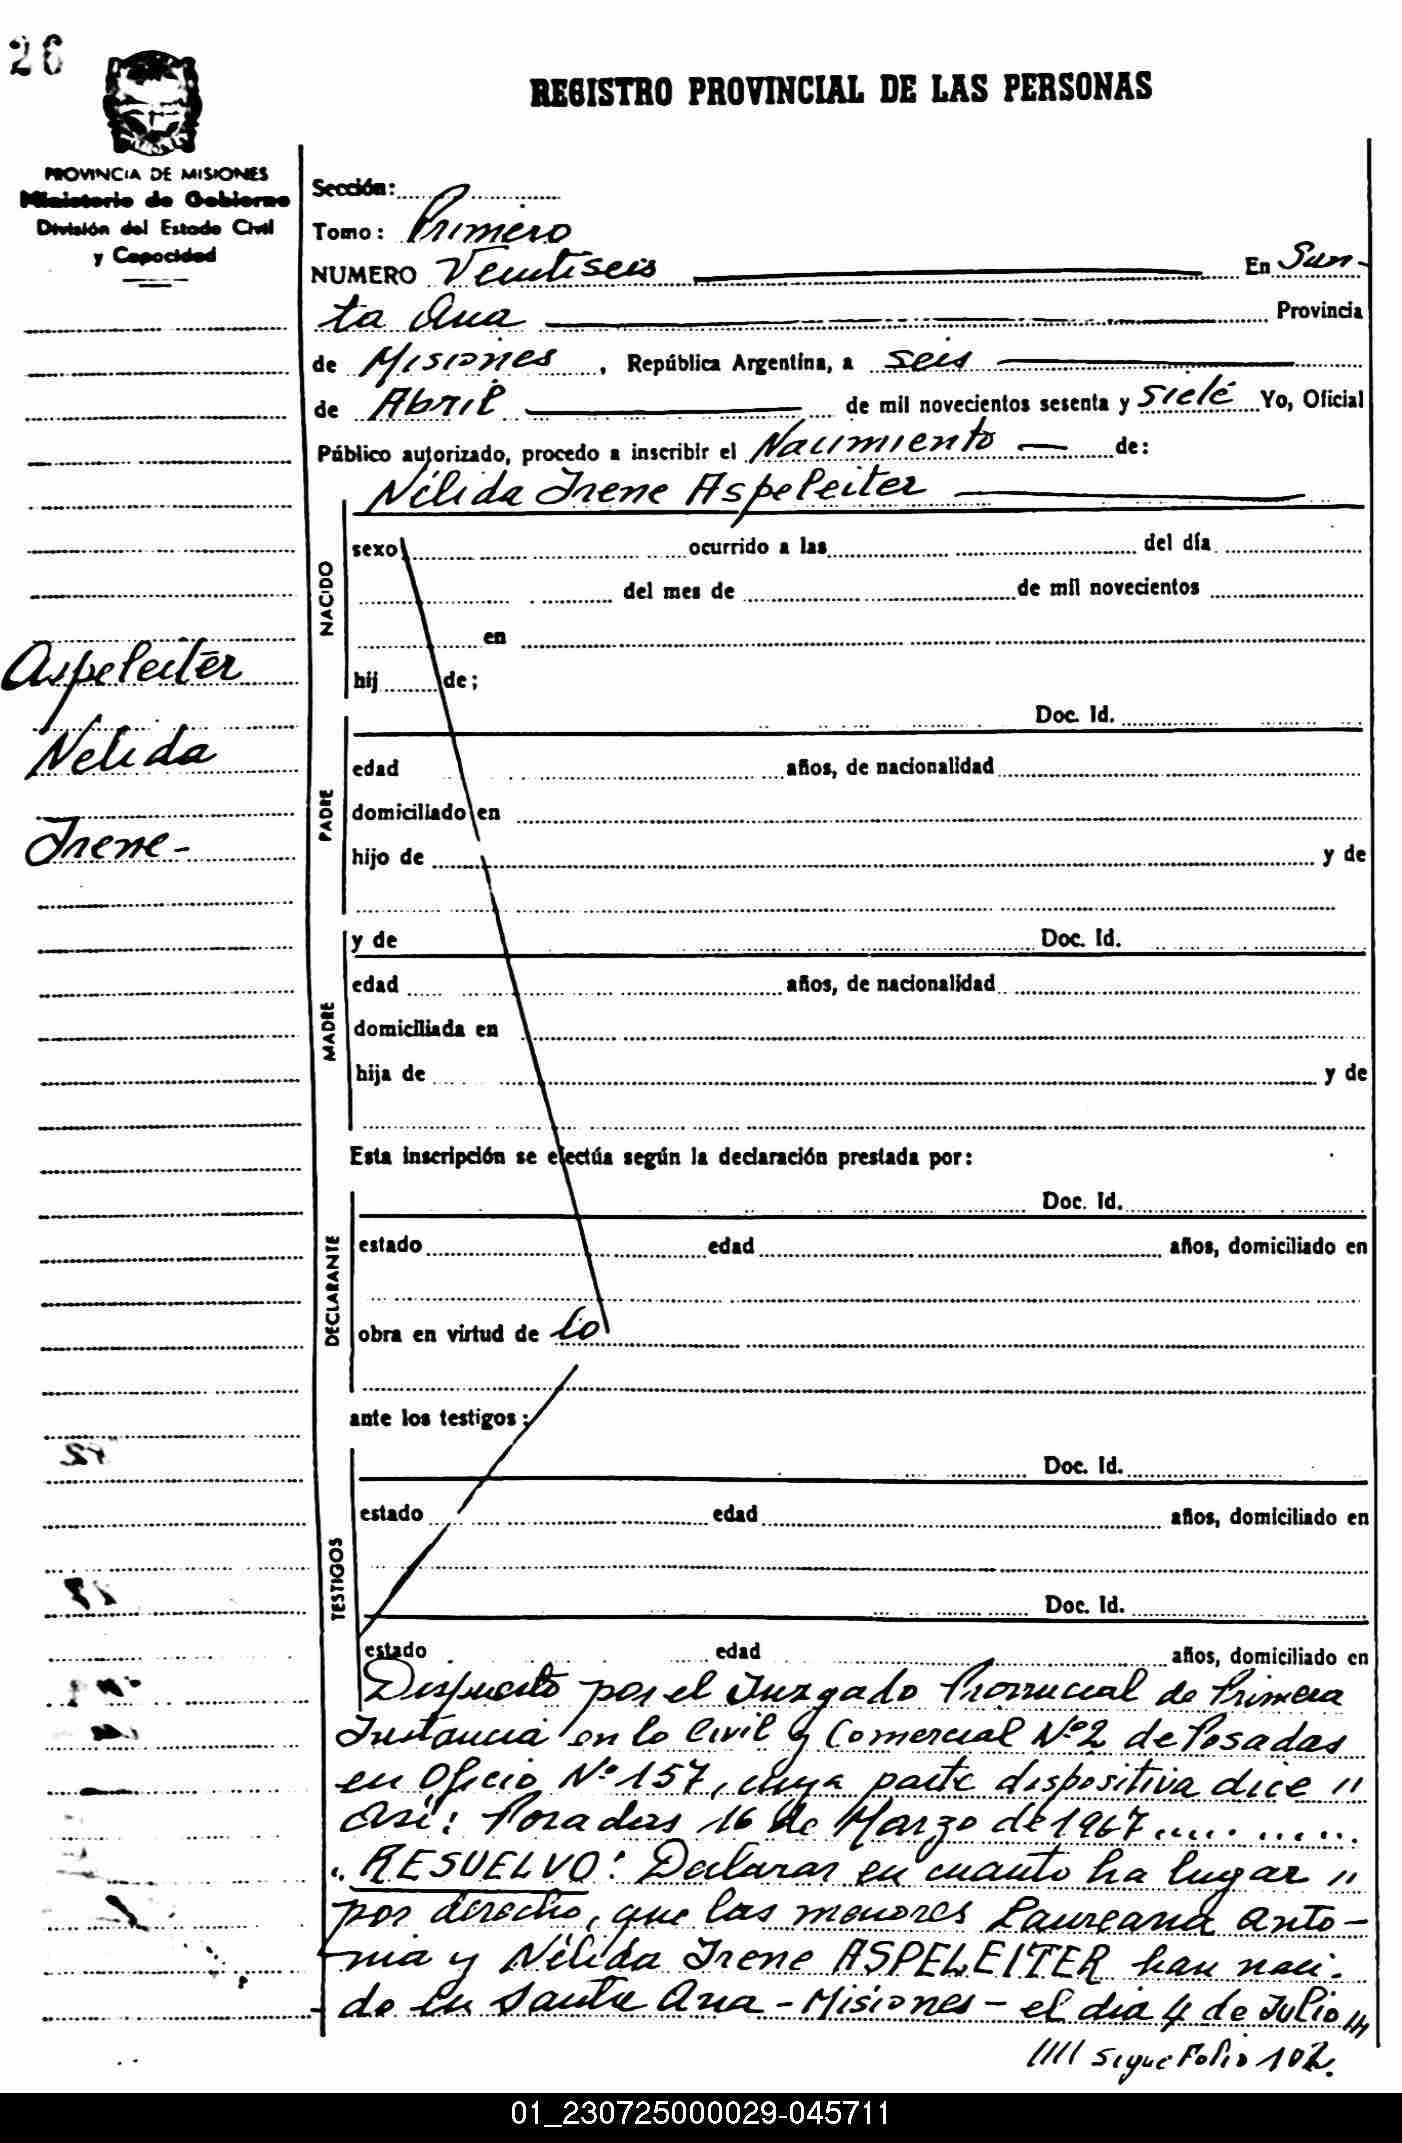 26
PROVINCIA DE MISIONES
Ministerio de Gobierno
División del Estado Civil
y Capacidad
REGISTRO PROVINCIAL DE LAS PERSONAS
Sección:
Tomo: Primero
NUMERO Veintiseis En San-
ta Ana Provincia
de Misiones, República Argentina, a seis
de Abril de mil novecientos sesenta y siete Yo, Oficial
Público autorizado, procedo a inscribir el Nacimiento de:
Nélida Irene Aspeleiter
NACIDO
sexo ocurrido a las del día
del mes de de mil novecientos
en
hij de;
Aspeleiter
Nelida
Irene-
PADRE
Doc. Id.
edad años, de nacionalidad
domiciliado en
hijo de y de
MADRE
y de Doc. Id.
edad años, de nacionalidad
domiciliada en
hija de y de
Esta inscripción se efectúa según la declaración prestada por:
DECLARANTE
Doc. Id.
estado edad años, domiciliado en
obra en virtud de lo
ante los testigos:
TESTIGOS
Doc. Id.
estado edad años, domiciliado en
Doc. Id.
estado edad años, domiciliado en
Dispuesto por el Juzgado Provincial de Primera
Instancia en lo Civil y Comercial Nº2 de Posadas
en Oficio Nº 157, cuya parte dispositiva dice "
Así: Posadas 16 de Marzo de 1967..........
.. RESUELVO: Declarar en cuanto ha lugar "
por derecho, que las menores Laureana Anto-
nia y Nélida Irene ASPELEITER han naci-
do en Santa Ana - Misiones - el dia 4 de Julio ///
//// sigue Folio 102.
01_230725000029-045711